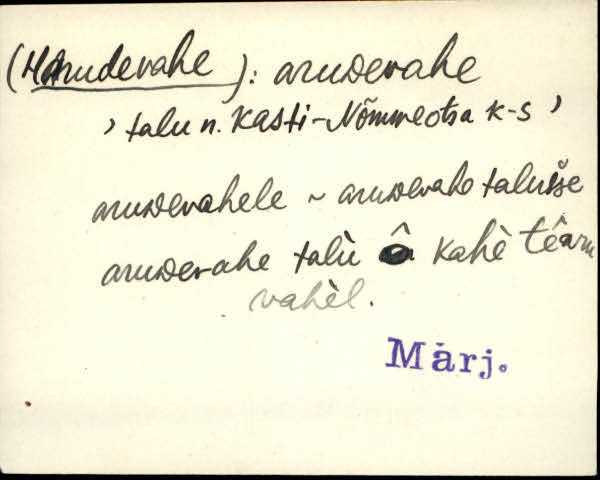 (Harudevahe): aruᴅevahe
, talu n. Kasti-Nõmmeotsa k-s ,
aruᴅevahele ~ aruᴅevahe talusse
aruᴅevahe talù ô kahè têaru
vahèl.
Märj.